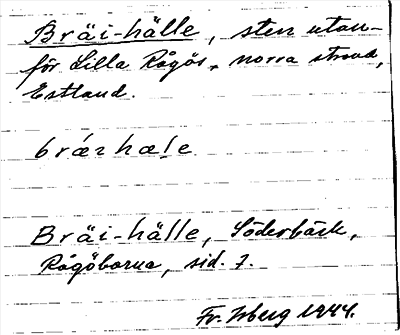 Bräi-hälle, sten utan-
för Lilla Rågös norra strand,
Estland.
Bräi-hälle, Söderbäck,
Rågöborna, sid. 7.
Fr. Isberg 1944.